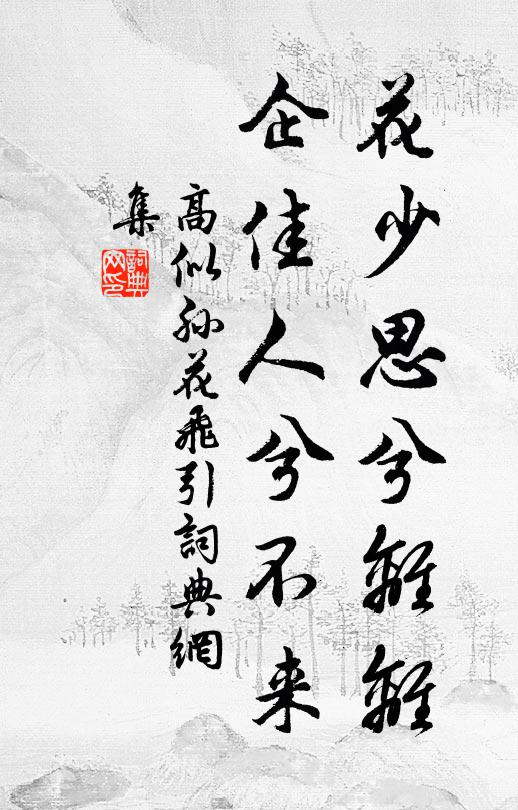 花少思兮離離
企佳人兮不来
高似孫花飛引詞典網
集
詞典
网印